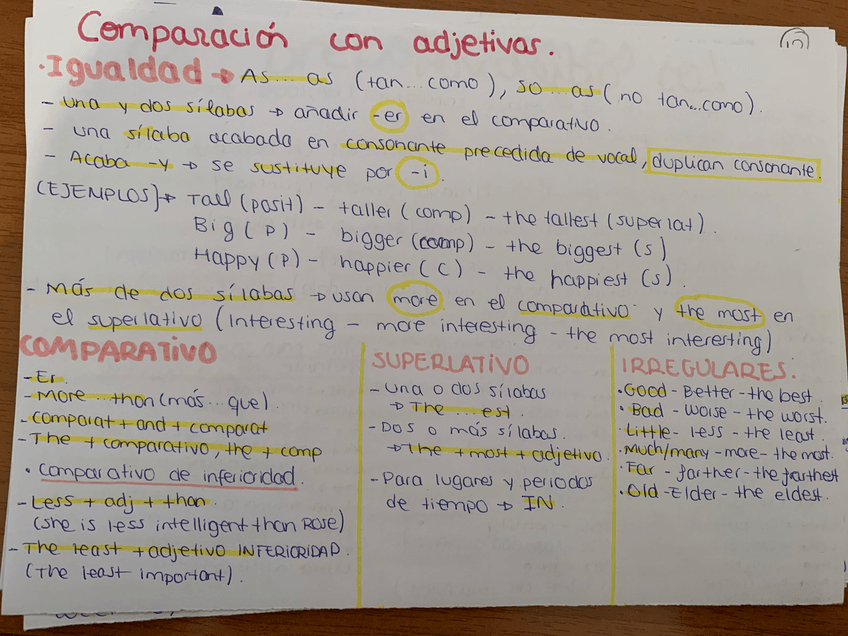 Comparación con adjetivos.
10
·Igualdad → As... as (tan...como), so...as (no tan...como).
- una y dos sílabas → añadir -er en el comparativo.
- una sílaba acabada en consonante precedida de vocal, duplican consonante.
- Acaba -y → se sustituye por -i.
(EJEMPLOS) → Tall (posit) - taller (comp) - the tallest (superlat).
Big (P) - bigger (comp) - the biggest (s)
Happy (P) - happier (C) - the happiest (s).
- Más de dos sílabas → usan more en el comparativo y the most en
el superlativo (Interesting - more interesting - the most interesting)
COMPARATIVO
- Er.
- More...than (más...que).
- comparat + and + comparat
- The + comparativo, the + comp
· Comparativo de inferioridad.
- Less + adj + than.
(she is less intelligent than Rose)
- The least + adjetivo INFERIORIDAD.
(The least important).
SUPERLATIVO
- Una o dos sílabas
→ The ... est.
- Dos o más sílabas.
→ The + most + adjetivo.
- Para lugares y periodos
de tiempo → IN.
IRREGULARES.
·Good - Better - the best.
·Bad - Worse - the worst.
·Little - less - the least.
·Much/many - more - the most.
·Far - farther - the farthest
·Old - Elder - the eldest.